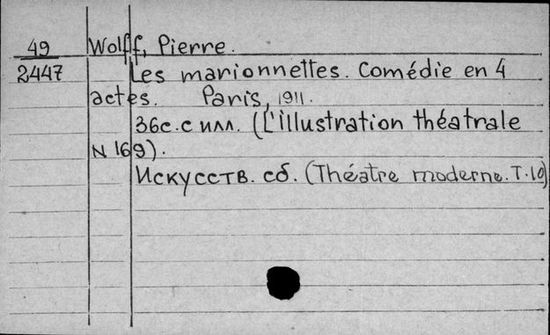 49 Wolff, Pierre.
2447 Les marionnettes. Comédie en 4
actes. Paris, 1911.
36с. с илл. (L'illustration théatrale
N 169).
Искусств. сб. (Théatre moderne. T.10)